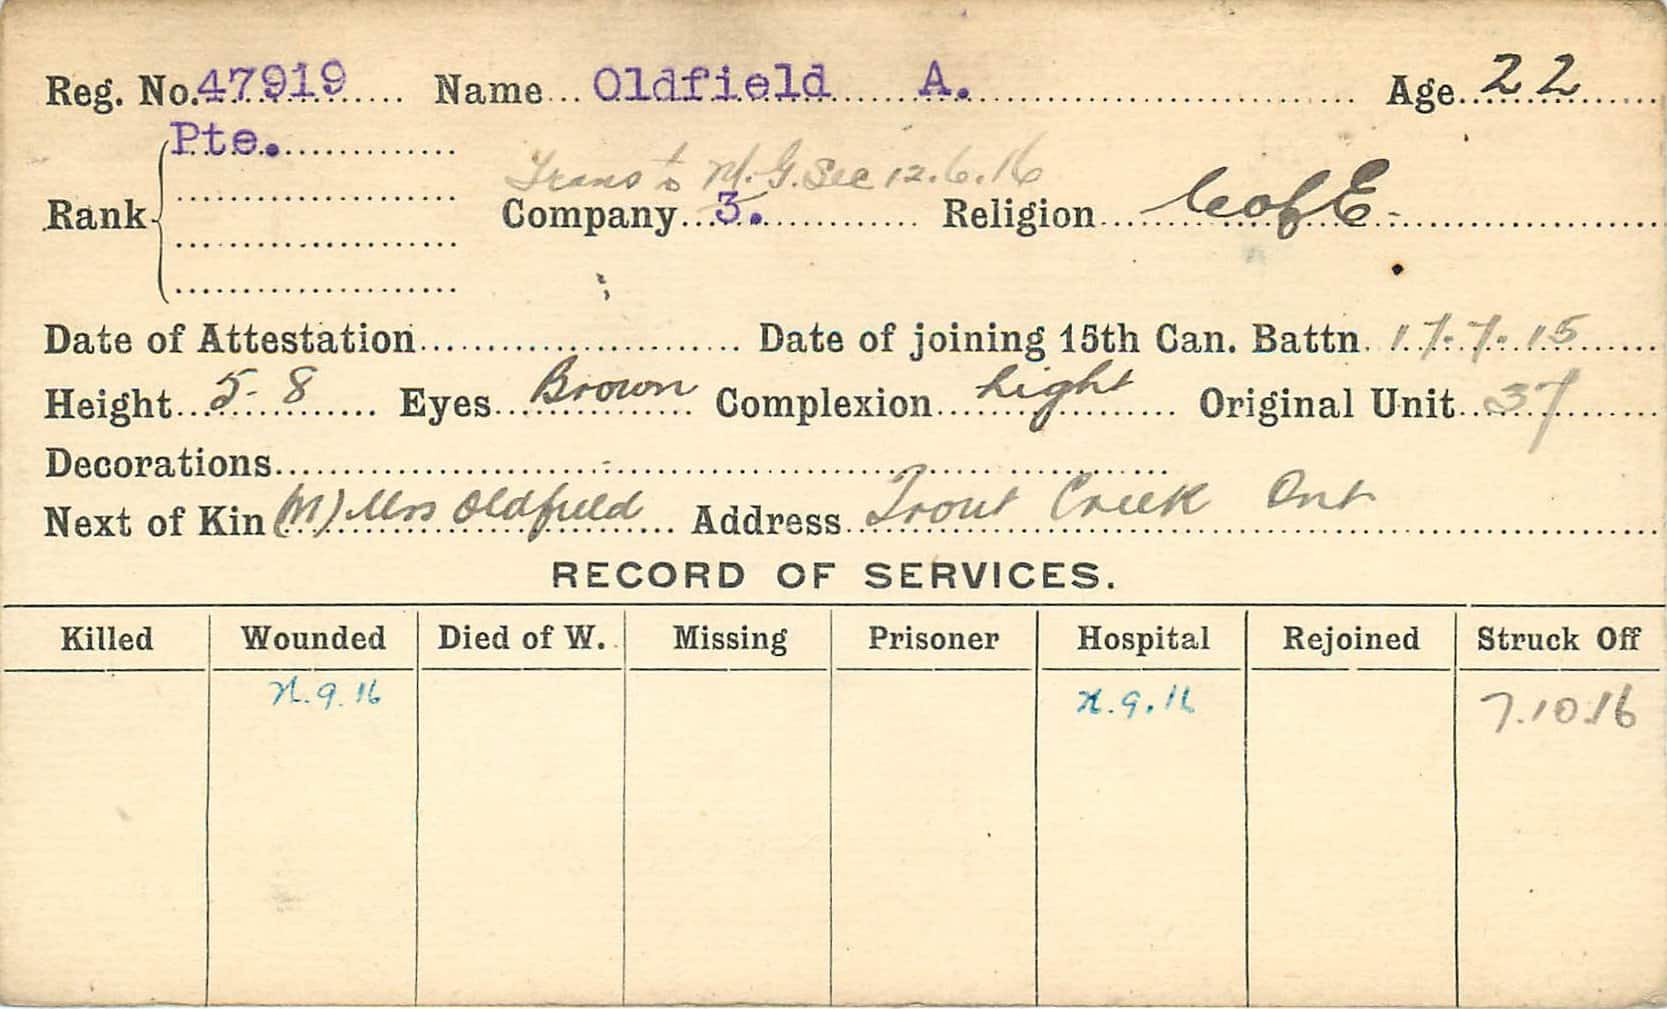 Reg. No. 47919 Name Oldfield A. Age 22
Pte.
Trans to M.G. Sec 12.6.16
Rank Company 3. Religion C of E
Date of Attestation Date of joining 15th Can. Battn. 17.7.15
Height 5-8 Eyes Brown Complexion Light Original Unit 37
Decorations
Next of Kin (M) Mrs Oldfield Address Trout Creek Ont
RECORD OF SERVICES.
Killed Wounded Died of W. Missing Prisoner Hospital Rejoined Struck Off
.9.16 .9.16 7.10.16